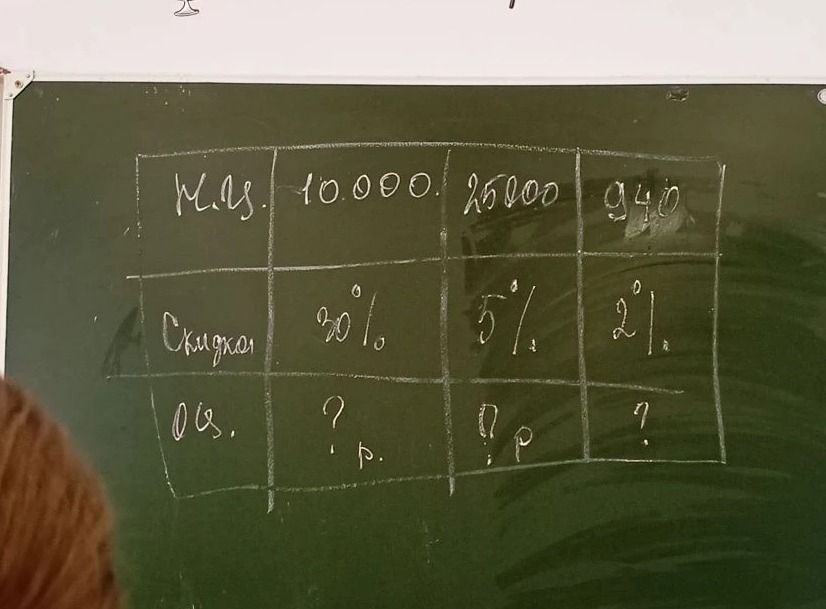 Н.Ц. 10.000. 25000 940
Скидка 30% 5% 2%
ОЦ. ? р. ? р ?